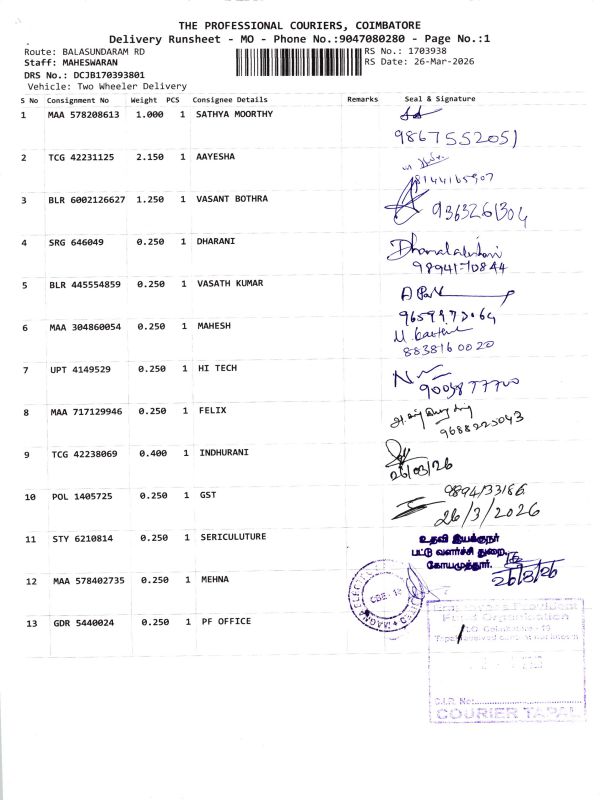 THE PROFESSIONAL COURIERS, COIMBATORE
Delivery Runsheet - MO - Phone No.:9047080280 - Page No.:1
Route: BALASUNDARAM RD RS No.: 1703938
Staff: MAHESWARAN RS Date: 26-Mar-2026
DRS No.: DCJB170393801
Vehicle: Two Wheeler Delivery
S No Consignment No Weight PCS Consignee Details Remarks Seal & Signature
1 MAA 578208613 1.000 1 SATHYA MOORTHY
9867552051
2 TCG 42231125 2.150 1 AAYESHA
8144165907
3 BLR 6002126627 1.250 1 VASANT BOTHRA
9363261304
4 SRG 646049 0.250 1 DHARANI
9894170844
5 BLR 445554859 0.250 1 VASATH KUMAR
6 MAA 304860054 0.250 1 MAHESH
8838160020
7 UPT 4149529 0.250 1 HI TECH
8 MAA 717129946 0.250 1 FELIX
9688223043
9 TCG 42238069 0.400 1 INDHURANI
26/03/26
10 POL 1405725 0.250 1 GST
9894133186
26/3/2026
11 STY 6210814 0.250 1 SERICULUTURE
உதவி இயக்குநர்
பட்டு வளர்ச்சி துறை,
கோயமுத்தூர்.
26/3/26
12 MAA 578402735 0.250 1 MEHNA
CBE-18
13 GDR 5440024 0.250 1 PF OFFICE
Organisation
COURIER TAPAL